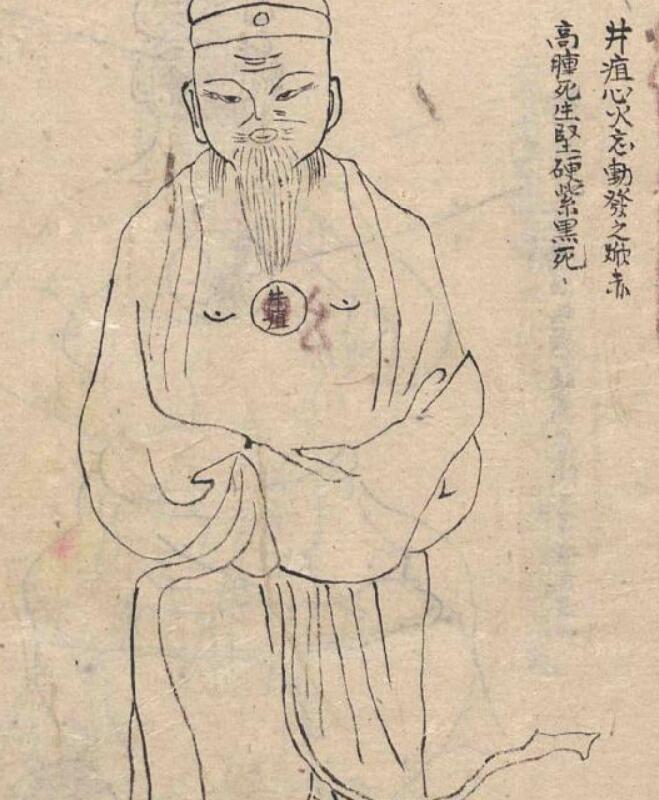 井疽心火忘動發之焮赤
高腫死生堅硬紫黑死、
井疽